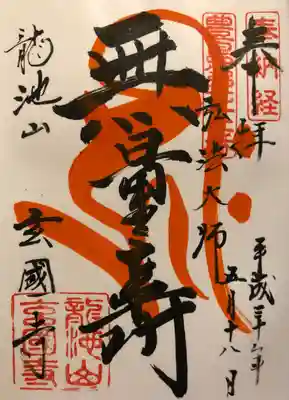 奉納経
奉拝
弘法大師
平成三十年
五月十八日
無量壽
龍池山
玄國寺
龍池山
玄國寺